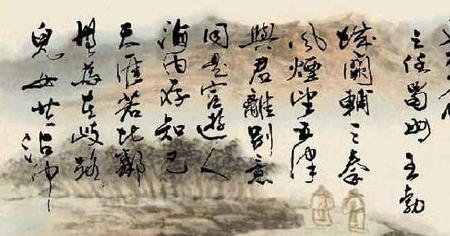 之任蜀州 王勃
城闕輔三秦
風煙望五津
與君離別意
同是宦遊人
海內存知己
天涯若比鄰
無為在歧路
兒女共沾巾